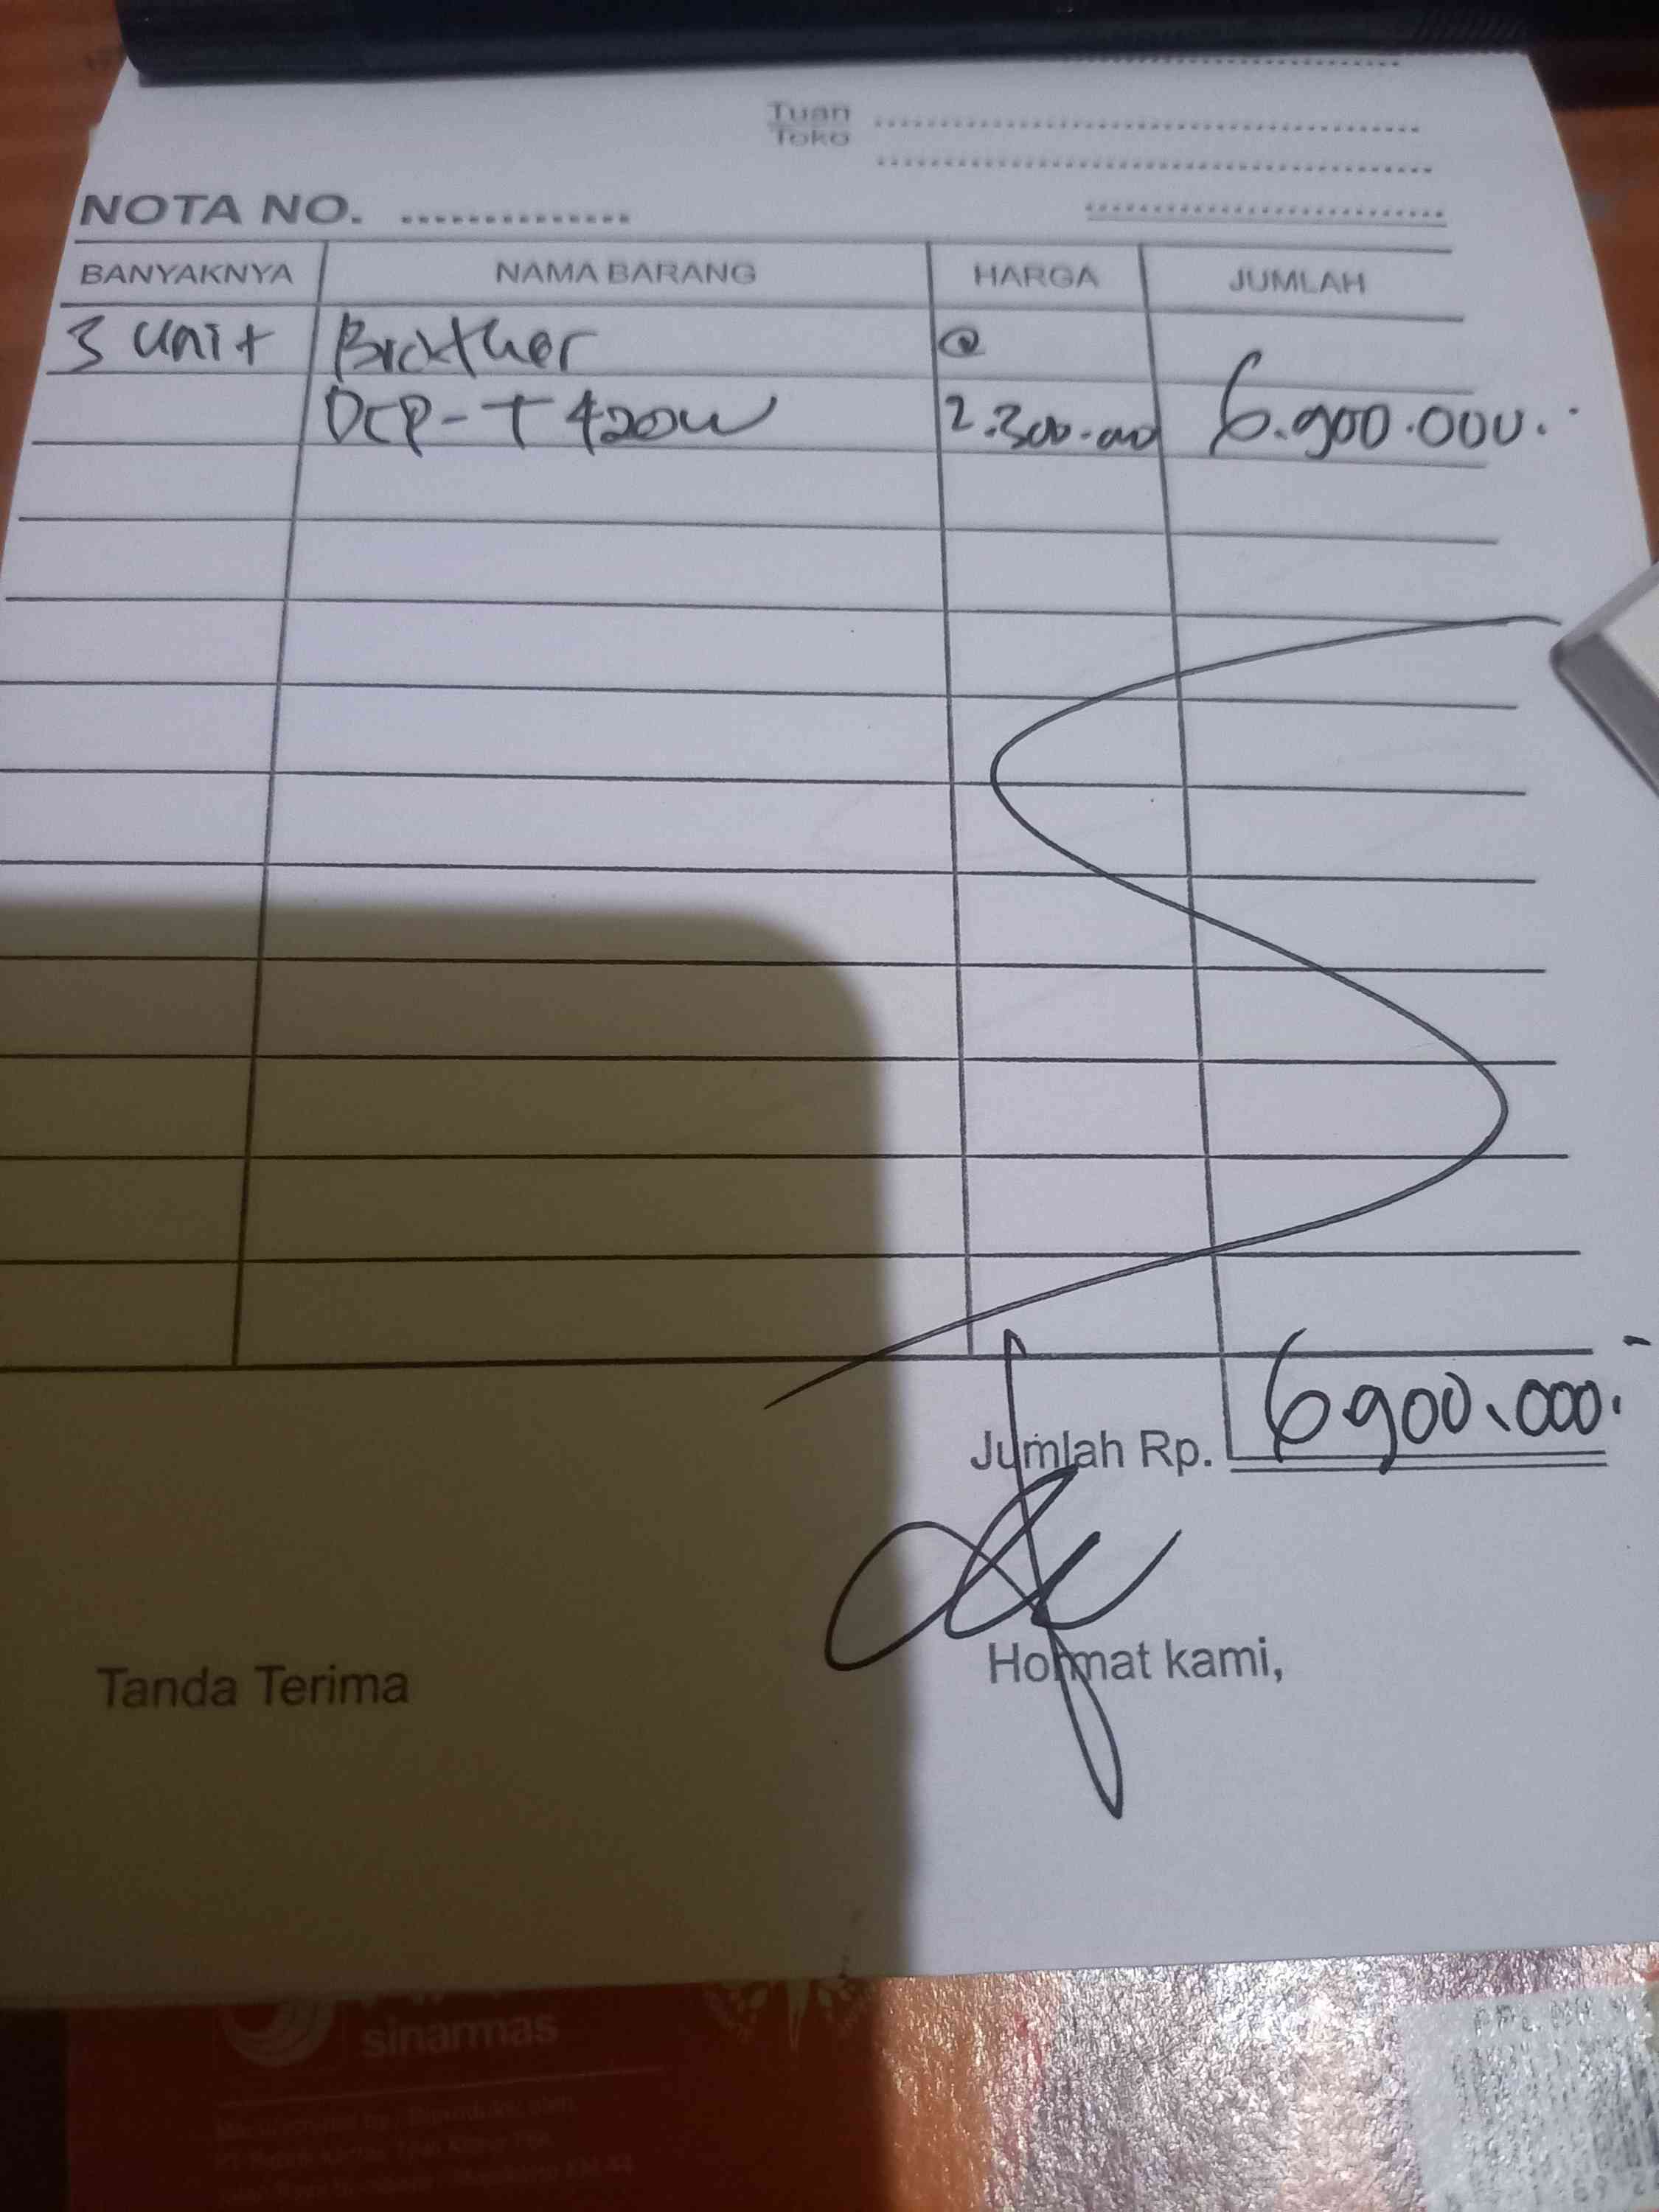 Tuan
Toko
NOTA NO.
BANYAKNYA NAMA BARANG HARGA JUMLAH
3 unit Brother @
DCP-T420W 2.300.000 6.900.000.-
Jumlah Rp. 6.900.000.-
Tanda Terima Hormat kami,
sinarmas